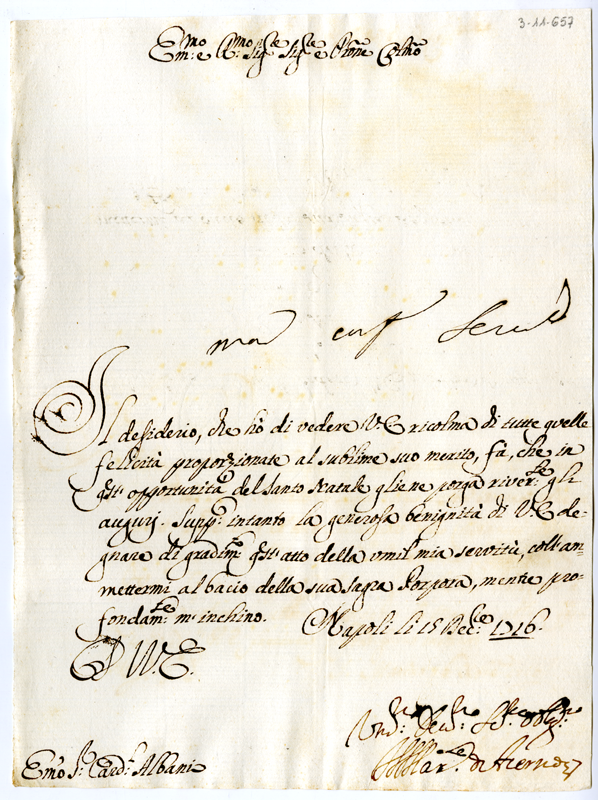 3-11-657
Em:mo e R:mo Sig:re Sig:re e Pr̃one Col̃mo
Il desiderio, che hò di vedere V.E. ricolma di tutte quelle
felicità proporzionate al sublime suo merito, fà, che in
qst' opportunità del Santo Natale gliene porga river:te gli
augurj. Supp:o intanto la generosa benignità di V.E. de-
gnare di gradim:o qst' atto della umil:ma mia servitù, coll' am-
mettermi al bacio della sua Sagra Porpora, mentre pro-
fondam:te m' inchino. Napoli li 15 Dec:re 1716.
D V.E.
Em:o S:r Card:l Albani